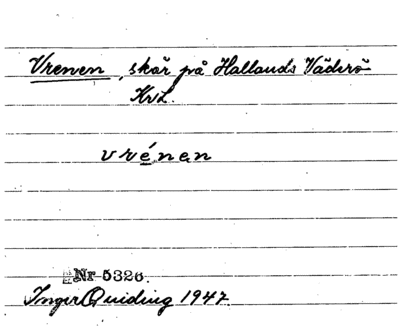 Vrenen, skär på Hallands Väderö
Kvl.
vrénen
Nr 5326.
Inger Quiding 1947